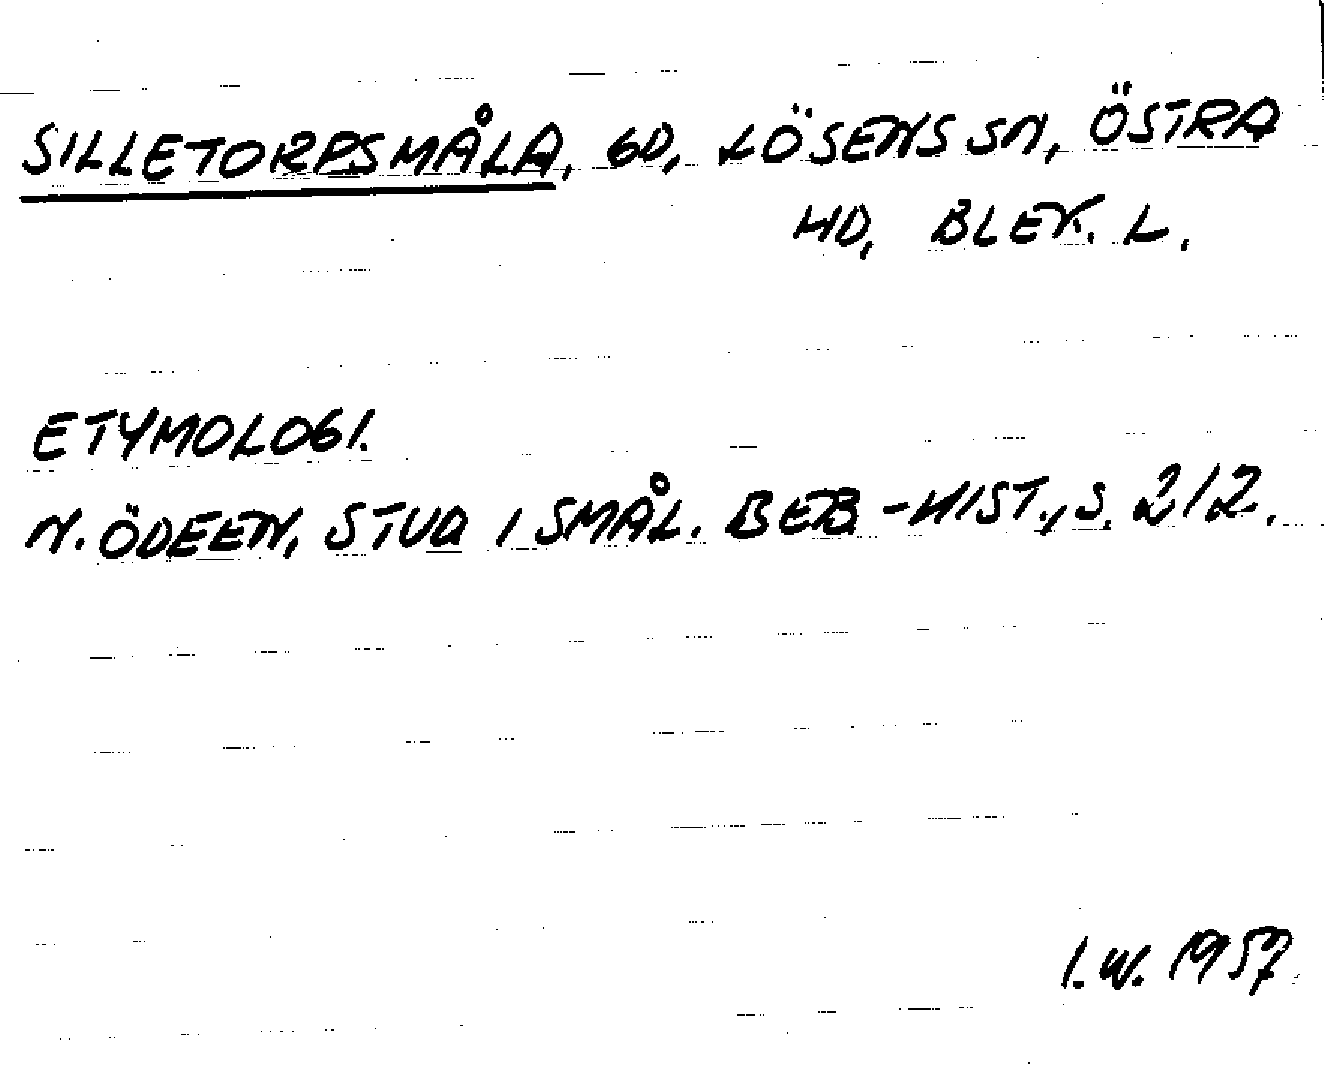 SILLETORPSMÅLA, GD, LÖSENS SN, ÖSTRA
HD, BLEK. L.
ETYMOLOGI.
N. ÖDEEN, STUD I SMÅL. BEB-HIST., S. 212.
I.W. 1957